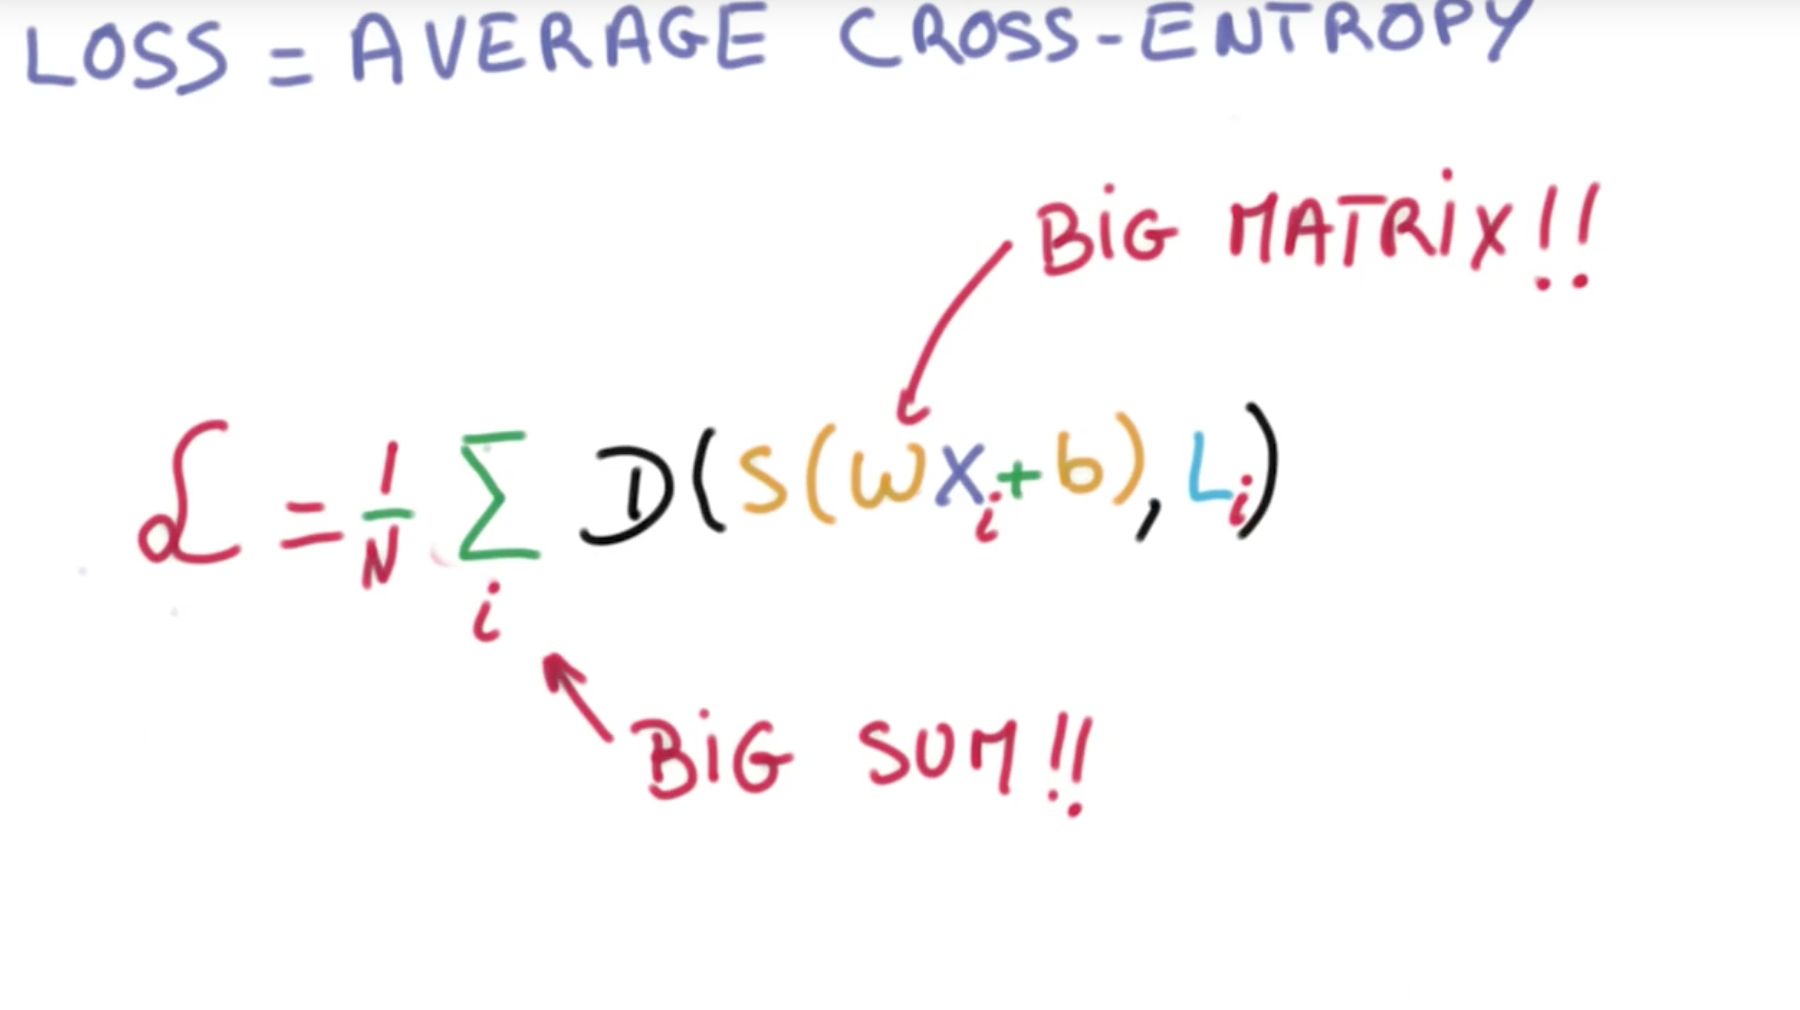 LOSS = AVERAGE CROSS-ENTROPY
BiG MATRiX!!
ℒ = 1/N Σ_i D(S(wX_i + b), L_i)
BiG SUM!!